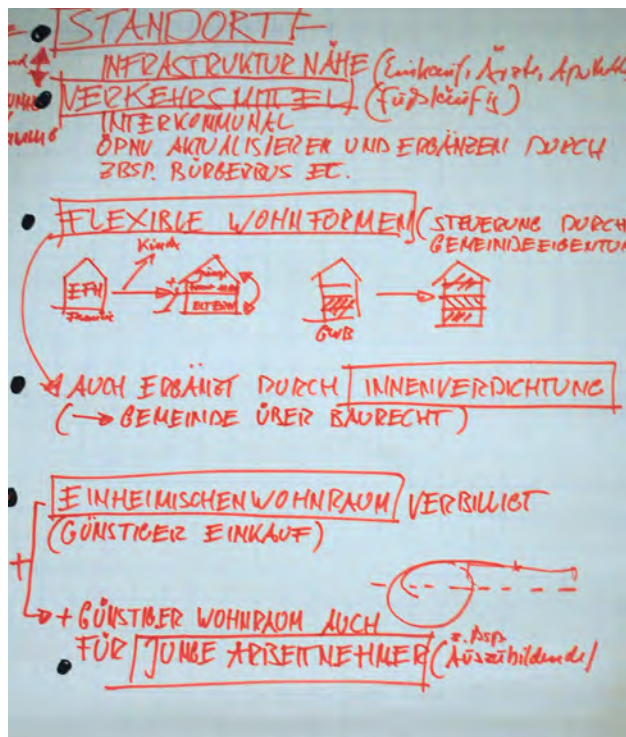 STANDORT
INFRASTRUKTUR NÄHE (Einkauf, Ärzte, Apothek
VERKEHRSMITTEL (fußläufig)
INTERKOMMUNAL
ÖPNV AKTUALISIEREN UND ERGÄNZEN DURCH
ZBSP. BÜRGERBUS EC.
FLEXIBLE WOHNFORMEN (STEUERUNG DURCH
GEMEINDEEIGENTUM
Kinder
EFH
Familie
ELTERN
GWB
AUCH ERGÄNZT DURCH INNENVERDICHTUNG
(→ GEMEINDE ÜBER BAURECHT)
EINHEIMISCHENWOHNRAUM VERBILLIGT
(GÜNSTIGER EINKAUF)
+
+ GÜNSTIGER WOHNRAUM AUCH
FÜR JUNGE ARBEITNEHMER (z.Bsp.
Auszubildende)